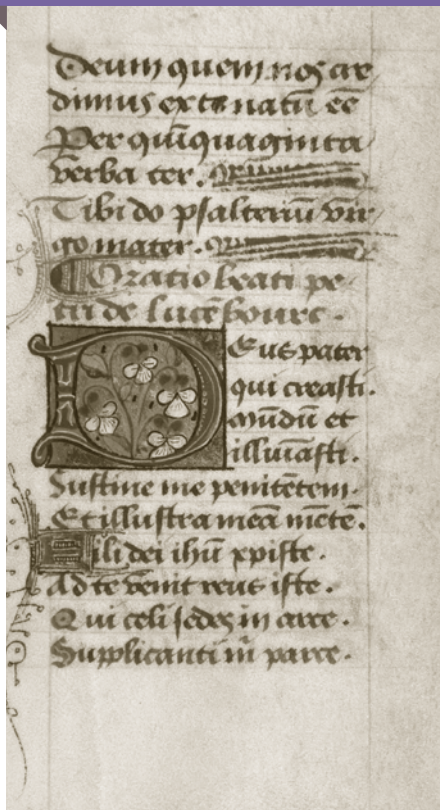 Deum quem nos cre
dimus ex te natū eē
Per quīquaginta
verba ter.
Tibi do psalteriū vir
go mater.
Oratio beati pe
tri de lucēbourc.
DEus pater
qui creasti.
mūdū et
illuīasti.
Sustine me penitētem.
Et illustra meā mētē.
Fili dei ihū xpiste.
Ad te venit reus iste.
Qui celi sedes in arce.
Supplicanti m̄ parce.